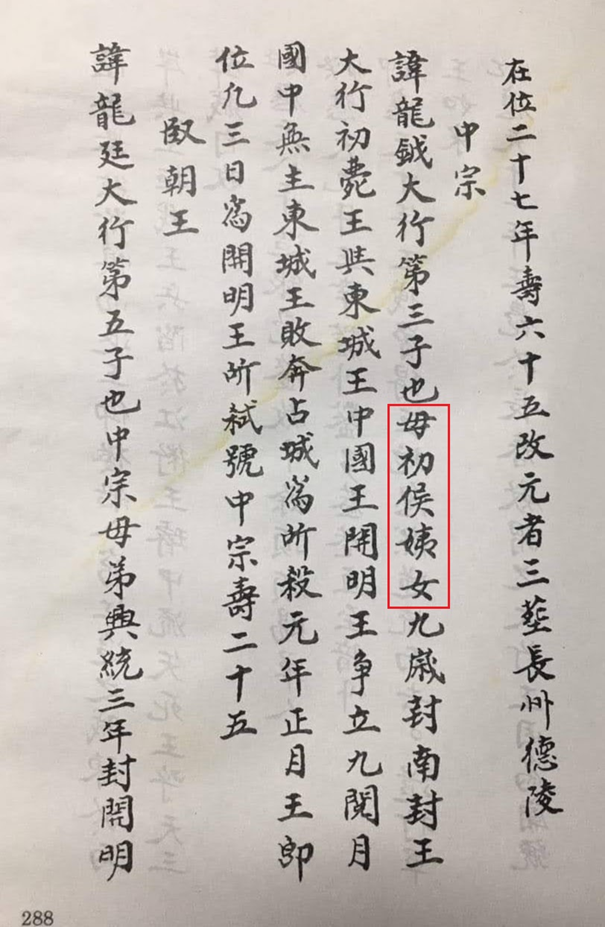 在位二十七年壽六十五改元者三塟長州德陵
中宗
諱龍鉞大行第三子也母初侯姨女九歲封南封王
大行初薨王與東城王中國王開明王爭立九閱月
國中無主東城王敗奔占城為所殺元年正月王即
位凡三日為開明王所弒號中宗壽二十五
臥朝王
諱龍廷大行第五子也中宗母弟興統三年封開明
288